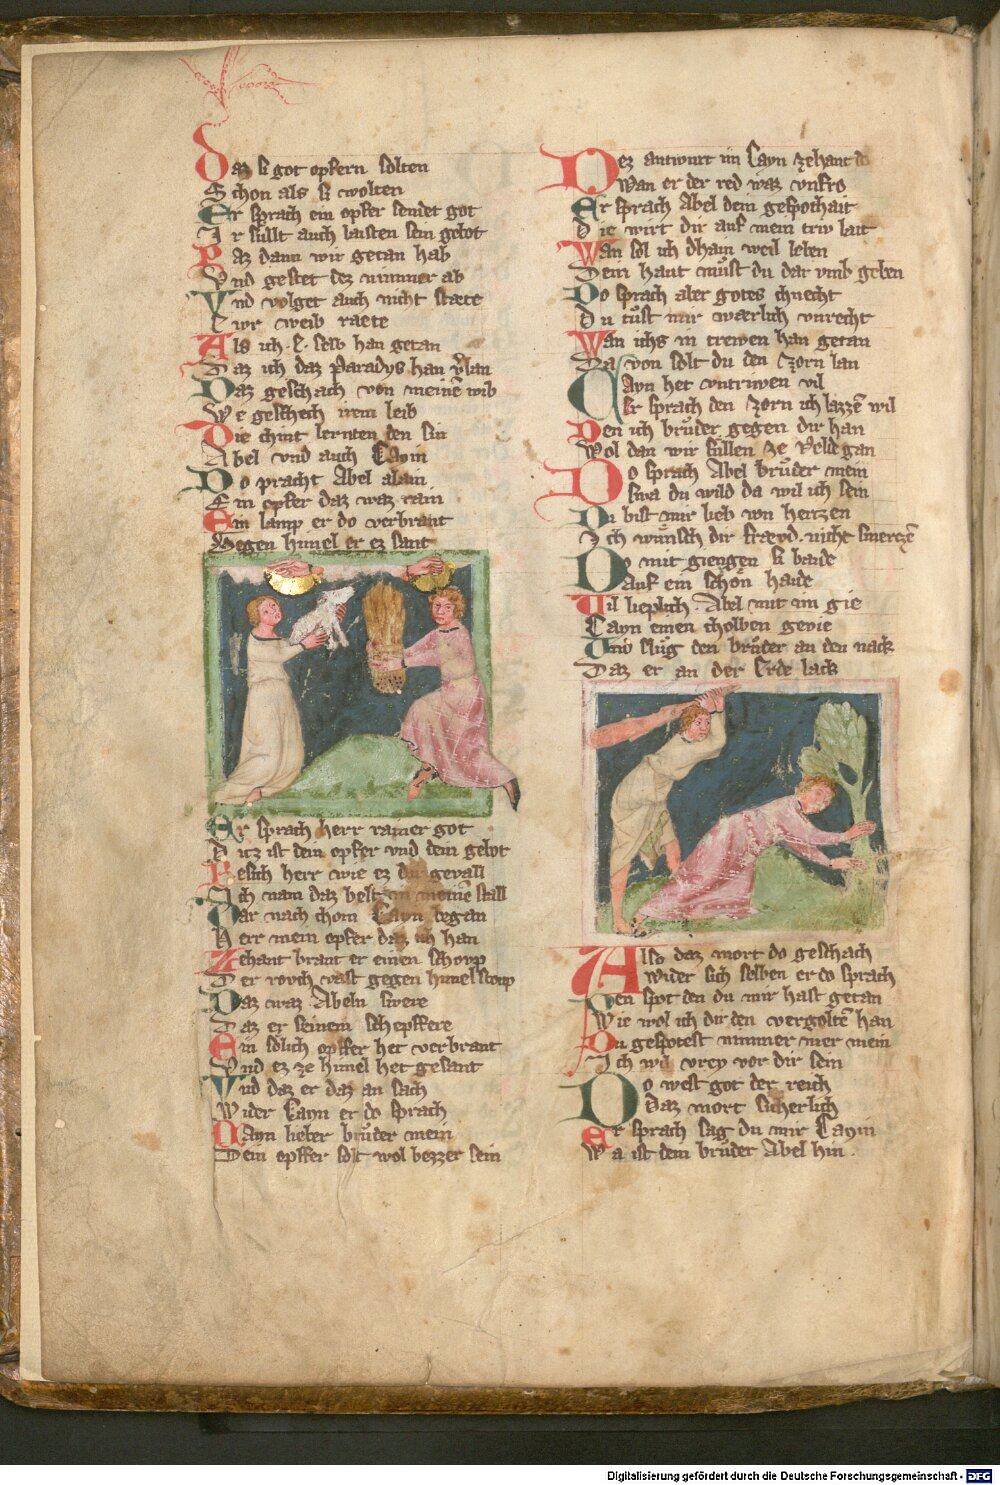 Daz si got opfern solten
Schon als si wolten
Er sprach ein opfer sendet got
Ir sullt auch laisten sein gebot
Baz dann wir getan hab
Vnd gestet dez nimmer ab
Vnd volget auch nicht stæte
Ewr weib raete
Als ich E selb han getan
Daz ich daz Paradys han vˢlan
Daz geschach von meinē wib
We geschech irem leib
Die chint lernten den sin
Abel vnd auch Cayin
Do pracht Abel alain
Ein opfer daz waz rain
Ein lamp er do verbrant
Gegen himel er ez sant
Er sprach herr rainer got
Ditz ist dein opfer vnd dein gebot
Besich herr wie ez dir gevall
Ich nam daz best in meinē stall
Dar nach chom Cayn began
Herr mein opfer daz ich han
Zehant brant er einen schoup
Der rovch vast gegen himel stoup
Daz waz Abeln swere
Daz er seinem schepffere
Ein solich opffer het verbrant
Vnd ez ze himel het gesant
Vnd daz er daz an sach
Wider Cayn er do sprach
Cayn lieber brůder mein
Dein opffer solt wol bezzer sein
Dez antwurt im Cayn zehant do
Wan er der red waz vnfro
Er sprach Abel dein gespothait
Die wirt dir auf mein triw lait
Wan sol ich dhain weil leben
Dein haut můst du dar vmb geben
Do sprach aber gotes chnecht
Du tůst mir wærlich vnrecht
Wan ichs in trewen han getan
Da von solt du den zorn lan
Cayn het vntriwen vil
Er sprach den zorn ich lazzē wil
Den ich brůder gegen dir han
Wol dan wir sullen ze velde gan
Do sprach Abel brůder mein
Swa du wild da wil ich sein
Du bist mir lieb von hertzen
Ich wünsch dir fræwd nicht smerczē
Do mit giengen si baide
Auf ein schön haide
Vil lieplich Abel mit im gie
Cayn einen cholben gevie
Vnd slůg den brůder an den nack
Daz er an der Erde lack
Also daz mort do geschach
Wider sich selben er do sprach
Den spot den du mir hast getan
Wie wol ich dir den vergoltē han
Du gespotest nimmer mer mein
Ich wil vrey vor dir sein
Do west got der reich
Daz mort sicherlich
Er sprach sag du mir Cayin
Wa ist dein brůder Abel hin.
Digitalisierung gefördert durch die Deutsche Forschungsgemeinschaft - DFG